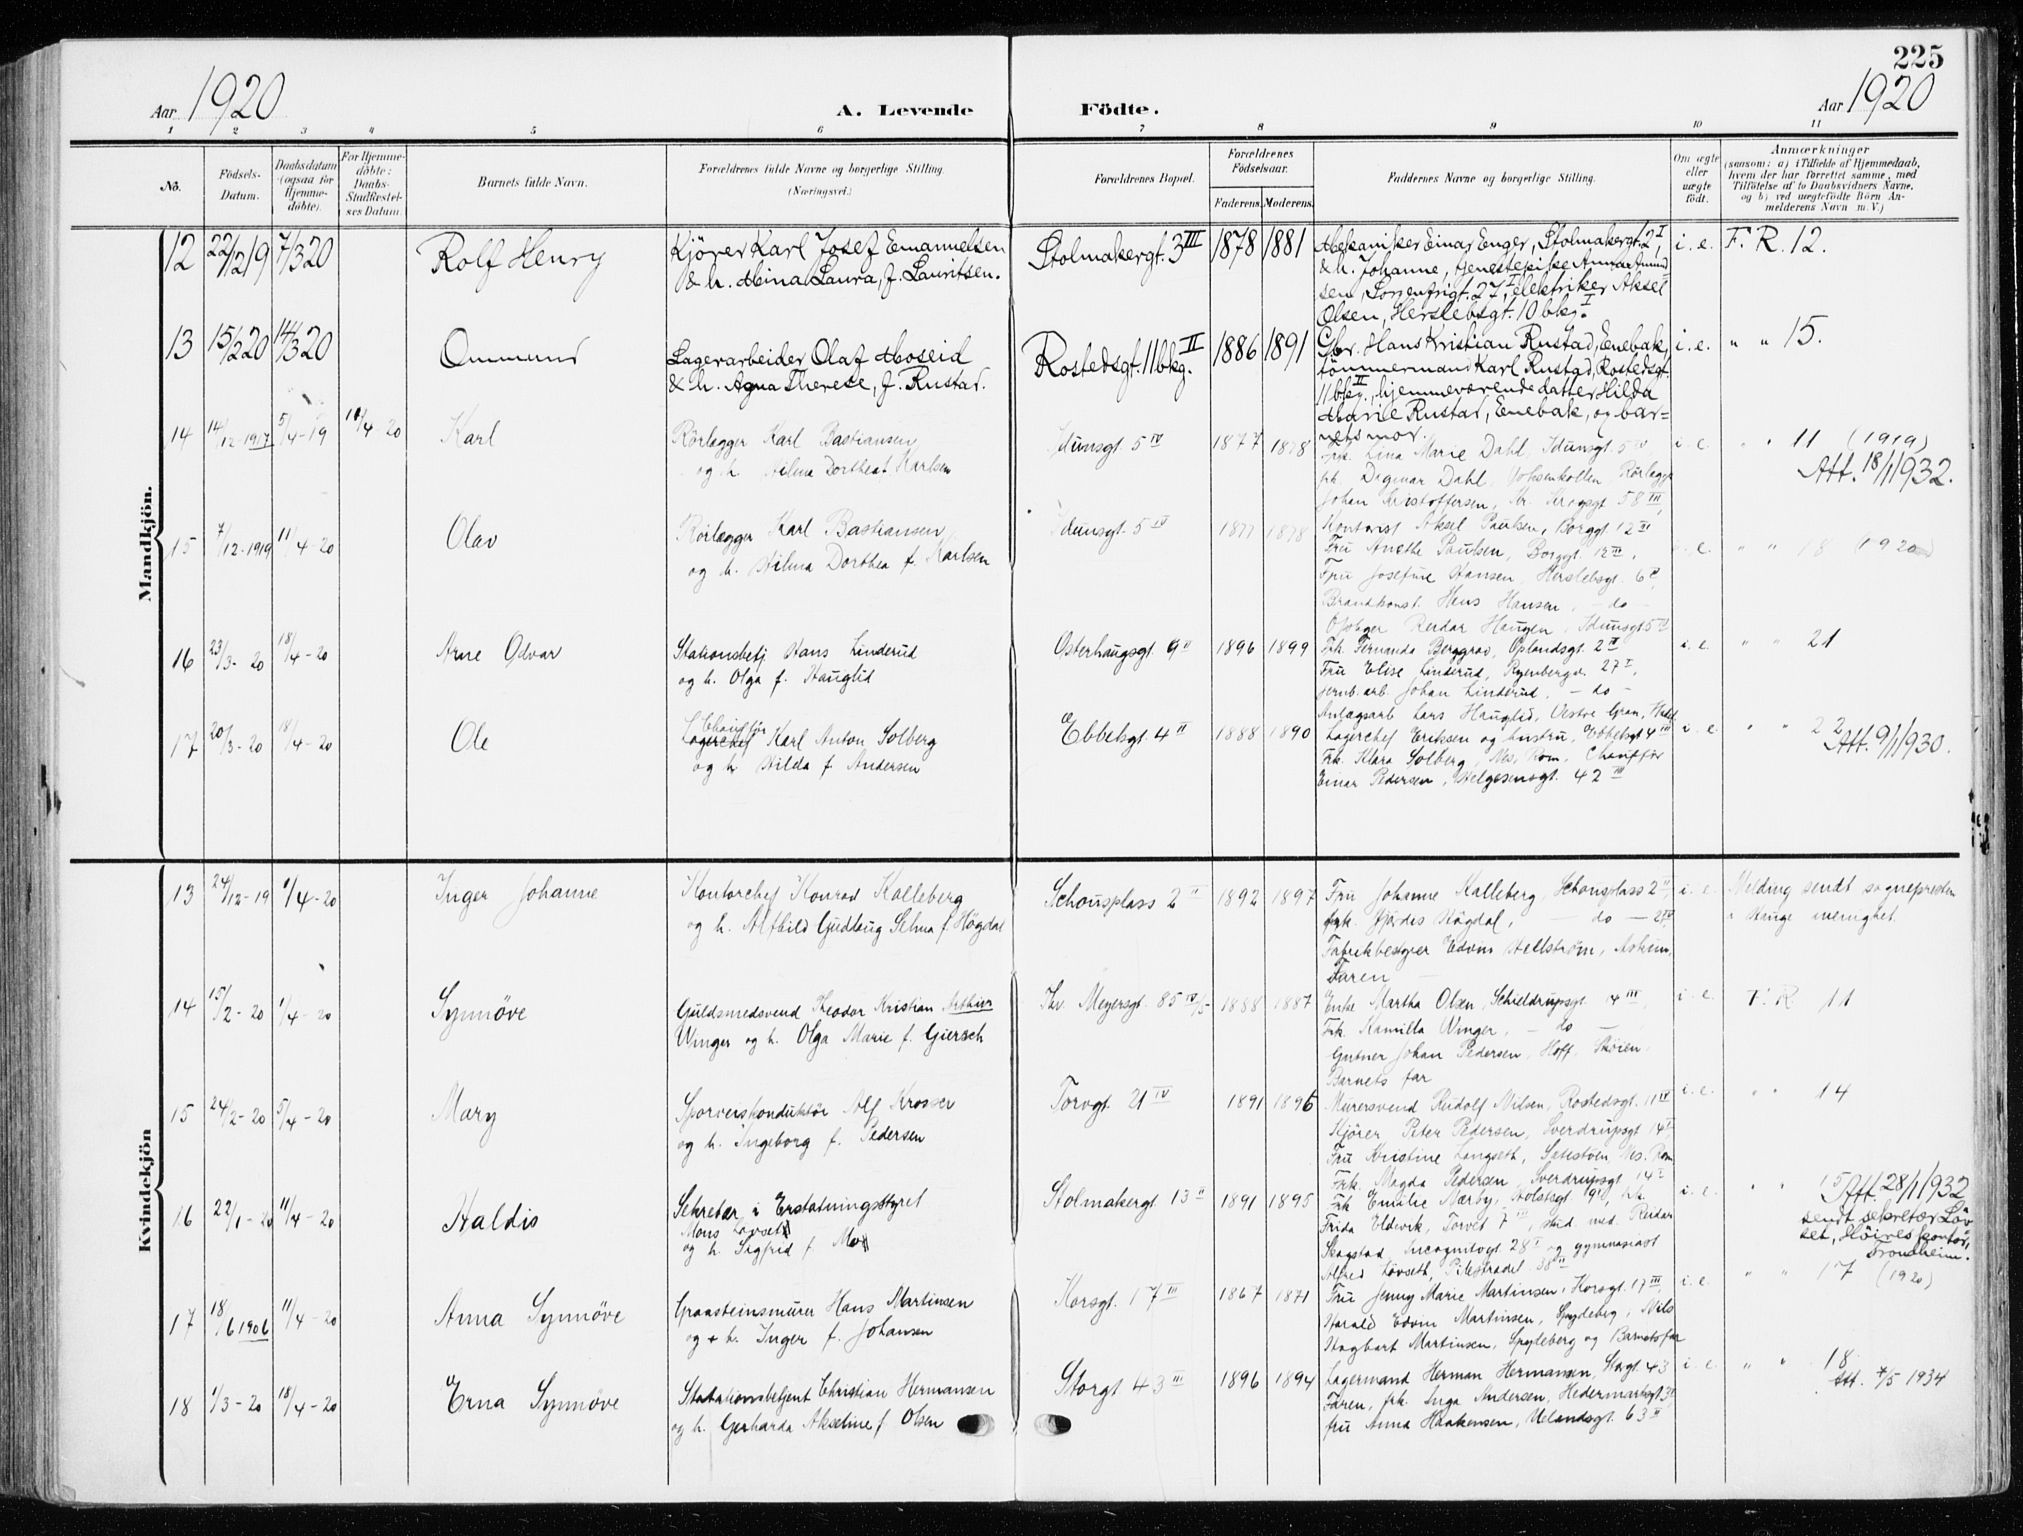 225
Aar 1920
A. Levende Födte.
Aar 1920
1 2 3 4 5 6 7 8 9 10 11
No.
Födsels-
Datum.
Daabsdatum
(ogsaa for
Hjemme-
döbte).
For Hjemme-
döbte:
Daabs-
Stadfæstel-
ses Datum.
Barnets fulde Navn.
Forældrenes fulde Navne og borgerlige Stilling
(Næringsvei.)
Forældrenes Bopæl.
Forældrenes
Födselsaar.
Faderens. Moderens.
Faddernes Navne og borgerlige Stilling.
Om ægte
eller
uægte
födt.
Anmærkninger
(saasom: a) i Tilfælde af Hjemmedaab,
hvem der har forrettet samme, med
Tilföielse af to Daabsvidners Navne,
og b) ved uægtefödte Börn An-
melderens Navn m. V.)
Mandkjön.
12 22/12 19 7/3 20 Rolf Henry
Kjörer Karl Josef Emanuelsen
& h. Mina Laura, f. Lauritsen.
Stolmakergt. 3 III 1878 1881
Mekaniker Einar Enger, Stolmakergt. 2 I,
& h. Johanne, tjenestepike Anna Amund
sen, Sorrenfrigt. 27 I, elektriker Aksel
Olsen, Herslebsgt. 10 bkg. I
i. e. F. R. 12.
13 15/2 20 14/3 20 Ommund
Lagerarbeider Olaf Moseid
& h. Agna Therese, f. Rustad.
Rostedsgt. 11 bkg. II 1886 1891
Gbr. Hans Kristian Rustad, Enebak,
tömmermand Karl Rustad, Rostedsgt.
11 bkg. II, hjemmeværende datter Hilda
Marie Rustad, Enebak, og bar-
nets mor.
i. e. " " 15.
14 14/12-1917 5/4-19 18/4-20 Karl
Rörlægger Karl Bastiansen
og h. Hilma Dorthea f. Karlsen
Idunsgt. 5 IV 1877 1878
Frk. Lina Marie Dahl, Idunsgt. 5 IV
frk. Dagmar Dahl, Voksenkollen, Rörlægger
Johan Kristoffersen, Kr. Krogsgt 58 III,
i. e. " " 11 (1919)
Att. 18/1 1932.
15 7/12-1919 11/4-20 Olav
Rörlægger Karl Bastiansen
og h. Hilma Dorthea f. Karlsen
Idunsgt. 5 IV 1877 1878
Kontorist Aksel Paulsen, Borggt 12 III
Fru Anethe Paulsen, Borggt. 12 III,
Fru Josefine Hansen, Herslebsgt. 6 c,
Brandkonst. Hans Hansen, - do -
Reidar Haugen, Idunsgt 5 IV
i. e. " " 18 (1920)
16 23/3-20 18/4-20 Arne Odvar
Stationsbetj Hans Linderud
og h. Olga f. Hauglid
Osterhaugsgt 9 II 1896 1899
Frk. Fernanda Berggrav, Oplandsgt. 2 II
Fru Elise Linderud, Ryenbergv. 27 I,
jernb. arb. Johan Linderud, - do -
Anlægsarb Lars Hauglid, Vestre Gran, Hadel.
i. e. " " 21
17 20/3-20 18/4-20 Ole
Chaufför
Lagerchef Karl Anton Solberg
og h. Hilda f. Andersen
Ebbelsgt. 4 II 1888 1890
Lagerchef Eriksen og hustru, Ebbelsgt 4 III
Frk. Klara Solberg, Nes, Rom. Chaufför
Einar Pedersen, Helgesensgt. 42 III
i. e. " " 22
Att. 9/1 1930.
Kvindekjön
13 24/12-19 1/4-20 Inger Johanne
Kontorchef Konrad Kalleberg
og h. Alfhild Gudlaug Selma f. Högdal
Schousplass 2 II 1892 1897
Fru Johanne Kalleberg, Schousplass 2 II
frk. Hjördes Högdal, - do - 2 IV,
Fabrikbestyrer Edvin Hellström, Askim,
Faren
i. e. Melding sendt sognepresten
i Hauge menighet.
14 15/2-20 1/4-20 Synnöve
Guldsmedsvend Theodor Kristian Arthur
Winger og h. Olga Marie f. Giersch
Thv. Meyersgt. 85 IV/5 1888 1887
Enke Martha Olsen, Schieldrupsgt. 14 III,
Frk. Kamilla Winger, - do -
Gartner Johan Pedersen, Hoff, Sköien.
Barnets far
i. e. F. R. 11
15 24/2-20 5/4-20 Mary
Sporveiskonduktör Alf Krosser
og h. Ingeborg f. Pedersen
Torvgt. 21 IV 1891 1896
Murersvend Rudolf Nilsen, Rostedsgt. 11 IV
Kjörer Peter Pedersen, Sverdrupsgt 14 I,
Fru Kristine Langseth, Nes. Rom.
Frk. Magda Pedersen, Sverdrupsgt 14 I
i. e. " " 14
16 22/1-20 11/4-20 Haldis
Sekretær i Erstatningsstyret
Mons Lövset
og h. Sigfrid f. Mo
Stolmakergt 13 II 1891 1895
Frk Emilie Nærby, Holstsgt 19 II, frk.
Frida Eldevik, Torvet 7 III, stud. med. Reidar
Skogstad, Incognitogt 28 I og gymnasiast
Alfred Lövseth, Pilestrædet 38 II
i. e. " " 15 Att. 28/1 1932
sendt sekretær Löv-
set, Höires kontor,
Trondheim.
17 18/6 1906 11/4-20 Anna Synnöve
Graasteinsmurer Hans Martinsen
og + h. Inger f. Johansen
Korsgt. 17 III 1867 1871
Fru Jenny Marie Martinsen, Korsgt. 17 III,
Harald Edvin Martinsen, Spydeberg, Nils
Hagbart Martinsen, Spydeberg og Barnets far
i. e. " " 17 (1920)
18 1/3-20 18/4-20 Erna Synnöve
Stationsbetjent Christian Hermansen
og h. Gerharda Akseline f. Olsen
Storgt. 43 III 1896 1894
Lagermand Herman Hermansen, Storgt 43
Faren, frk. Inga Andersen, Hedermarksgt 3 II
fru Anna Haakensen, Uelandsgt. 63 II
i. e. " " 18
Att. 4/5 1934